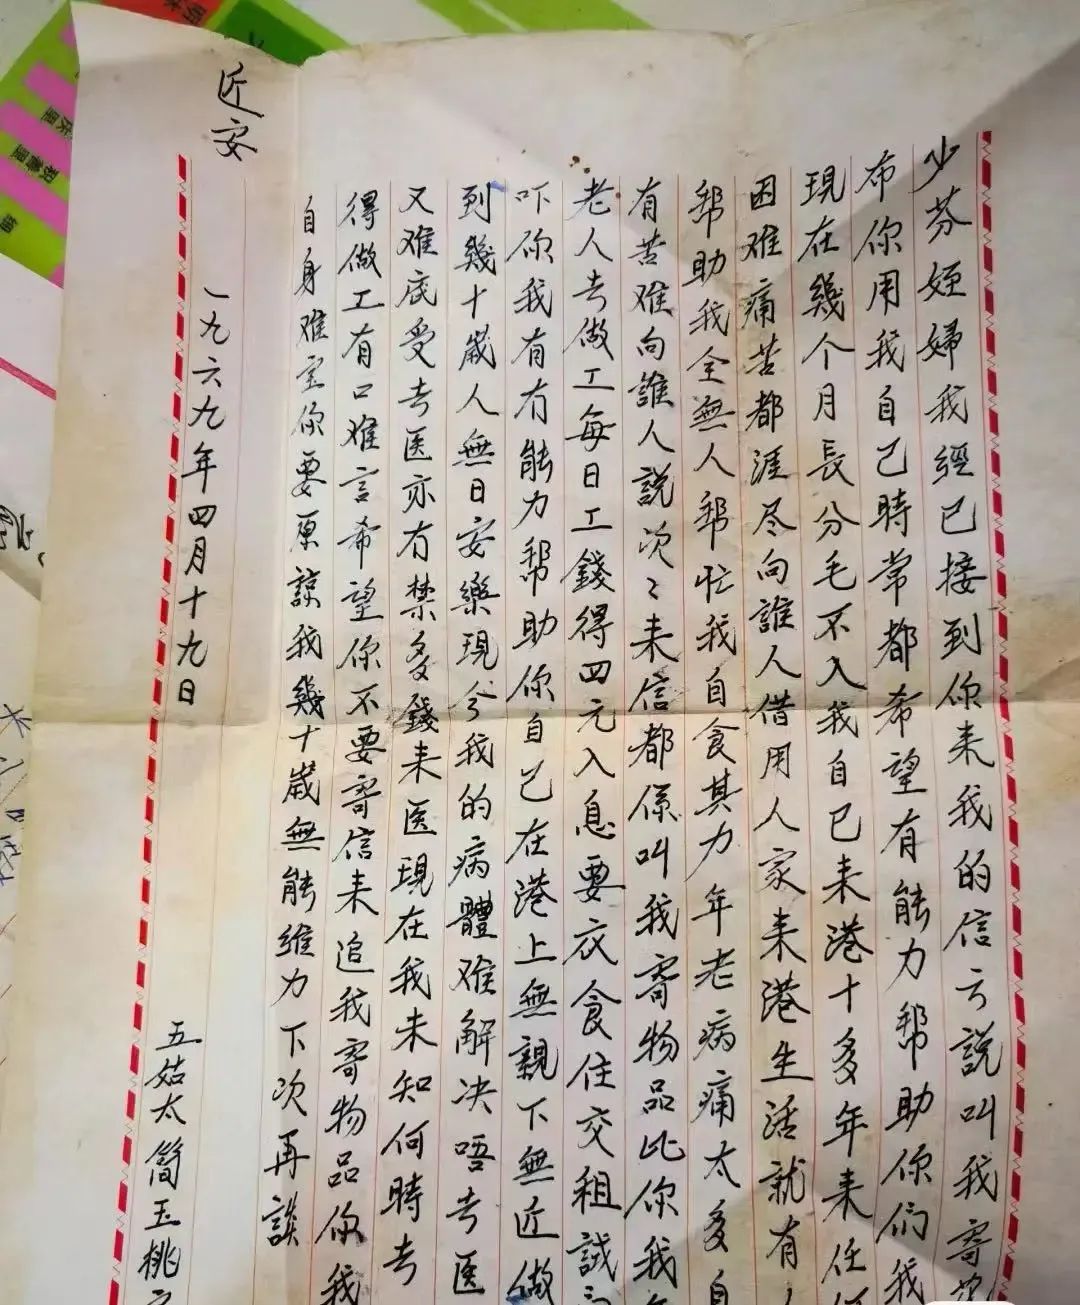 少芬姪婦我經已接到你来我的信云説叫我寄
布你用我自己時常都希望有能力帮助你们我
現在幾个月長分毛不入我自己来港十多年来任
困难痛苦都涯尽向誰人借用人家来港生活就有
帮助我全無人帮忙我自食其力年老病痛太多自
有苦难向誰人説次〻来信都係叫我寄物品比你我
老人去做工每日工錢得四元入息要衣食住交租誠
吓你我有冇能力帮助你自己在港上無親下無近做
到幾十歲人無日安樂現今我的病體难解决唔去医
又难底受去医亦冇禁多錢来医現在我未知何時去
得做工有口难言希望你不要寄信来追我寄物品你我
自身难宝你要原諒我幾十歲無能维力下次再談
近安
一九六九年四月十九日
五姑太簡玉桃